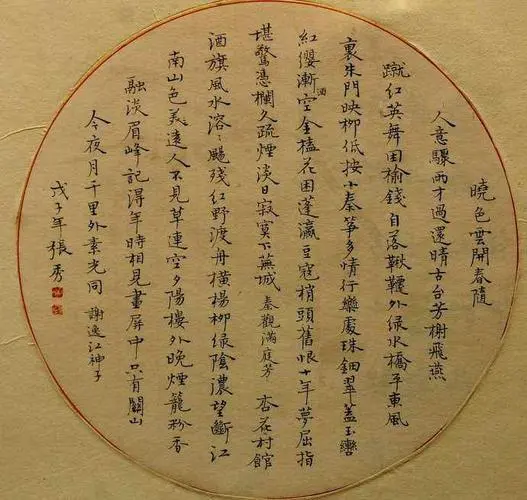 曉色雲開春隨
人意驟雨才過還晴古台芳榭飛燕
蹴紅英舞困榆錢自落鞦韆外綠水橋平東風
裏朱門映柳低按小秦箏多情行樂處珠鈿翠蓋玉轡
紅纓漸酒空金榼花困蓬瀛豆寇梢頭舊恨十年夢屈指
堪驚憑欄久疏煙淡日寂寞下蕪城 秦觀滿庭芳 杏花村館
酒旗風水溶〻颺殘紅野渡舟橫楊柳綠陰濃望斷江
南山色美遠人不見草連空夕陽樓外晚煙籠粉香
融淡眉峰記得年時相見畫屏中只有關山
今夜月千里外素光同 謝逸江神子
戊子年張秀